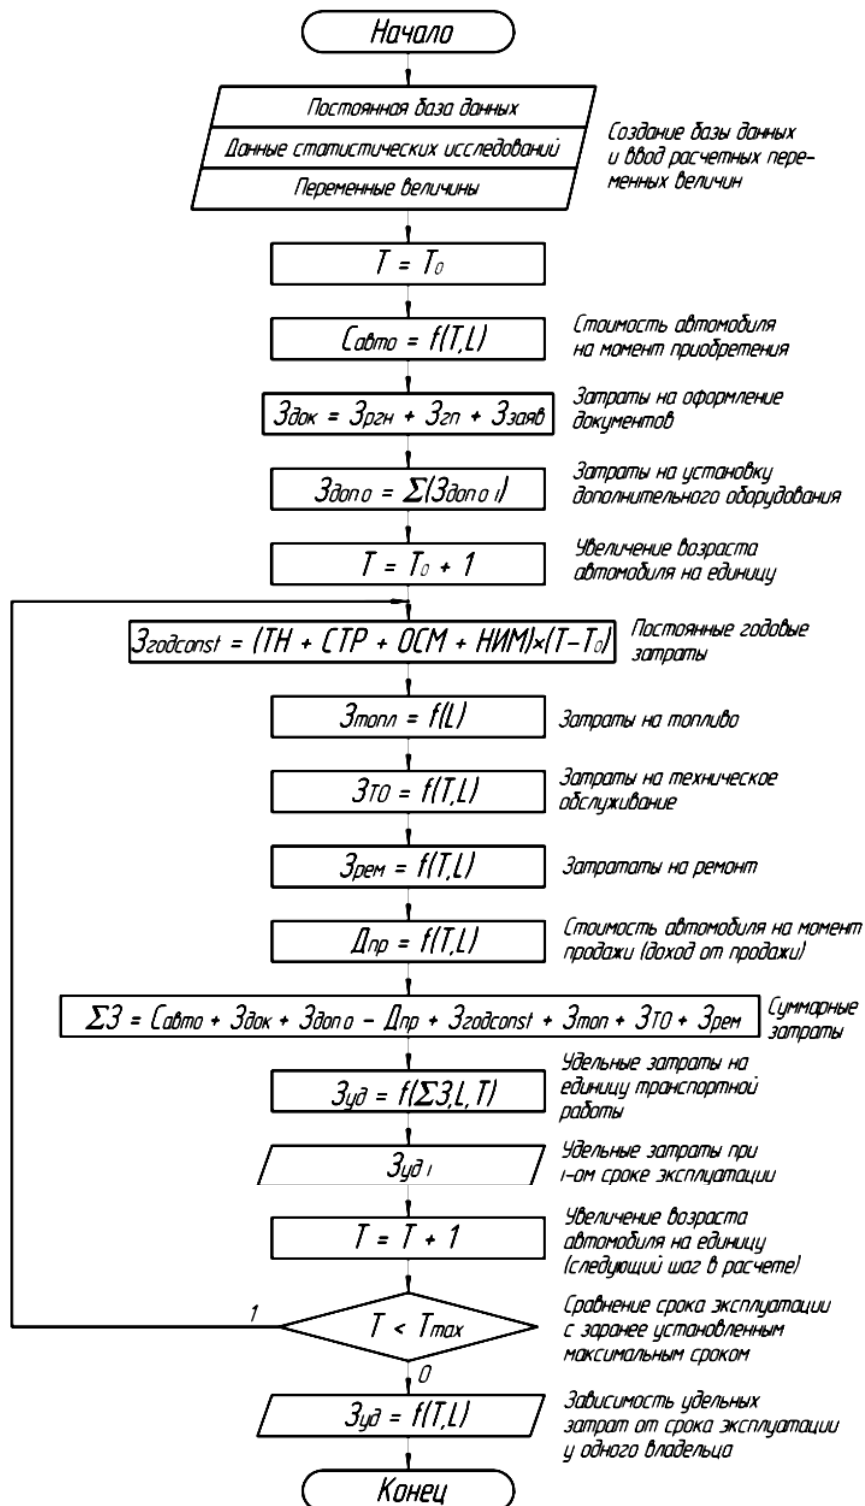 Начало
Постоянная база данных
Данные статистических исследований
Переменные величины
Создание базы данных
и ввод расчетных пере-
менных величин
T = T₀
Cавто = f(T,L)
Стоимость автомобиля
на момент приобретения
Здок = Зргн + Згп + Ззаяв
Затраты на оформление
документов
Здоп о = Σ(Здоп о i)
Затраты на установку
дополнительного оборудования
T = T₀ + 1
Увеличение возраста
автомобиля на единицу
Згодconst = (ТН + СТР + ОСМ + НИМ)×(T−T₀)
Постоянные годовые
затраты
Зтопл = f(L)
Затраты на топливо
ЗТО = f(T,L)
Затраты на техническое
обслуживание
Зрем = f(T,L)
Затрататы на ремонт
Дпр = f(T,L)
Стоимость автомобиля на момент
продажи (доход от продажи)
ΣЗ = Cавто + Здок + Здоп о − Дпр + Згодconst + Зтоп + ЗТО + Зрем
Суммарные
затраты
Зуд = f(ΣЗ,L,T)
Удельные затраты на
единицу транспортной
работы
Зуд i
Удельные затраты при
i-ом сроке эксплуатации
T = T + 1
Увеличение возраста
автомобиля на единицу
(следующий шаг в расчете)
1
T < Tmax
Сравнение срока эксплуатации
с заранее установленным
максимальным сроком
0
Зуд = f(T,L)
Зависимость удельных
затрат от срока эксплуатации
у одного владельца
Конец